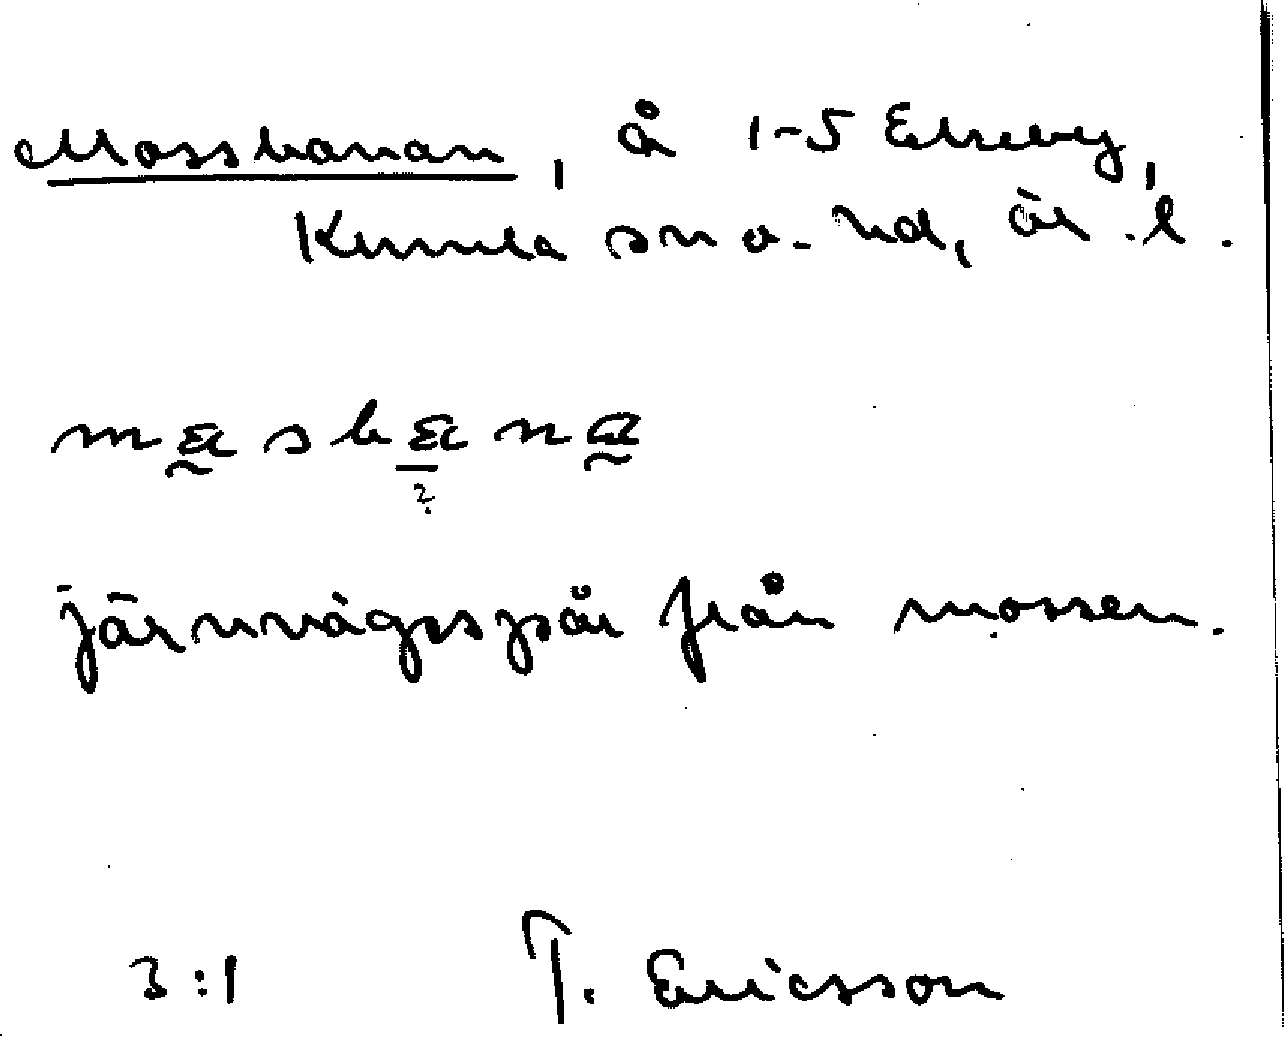 Mossbanan, å 1-5 Ekeby,
Kumla sn o. hd, Ör. l.
järnvägsspår från mossen.
3:1 T. Ericsson